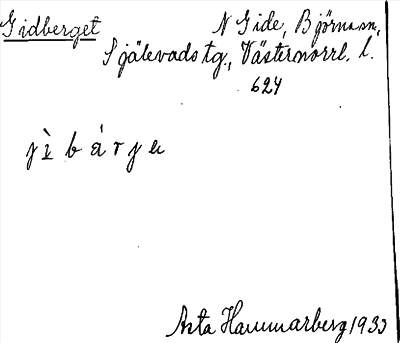 Gidberget N Gide, Björna sn,
Själevads tg., Västernorrl. l.
624
jì b á r j e
Asta Hammarberg 1933